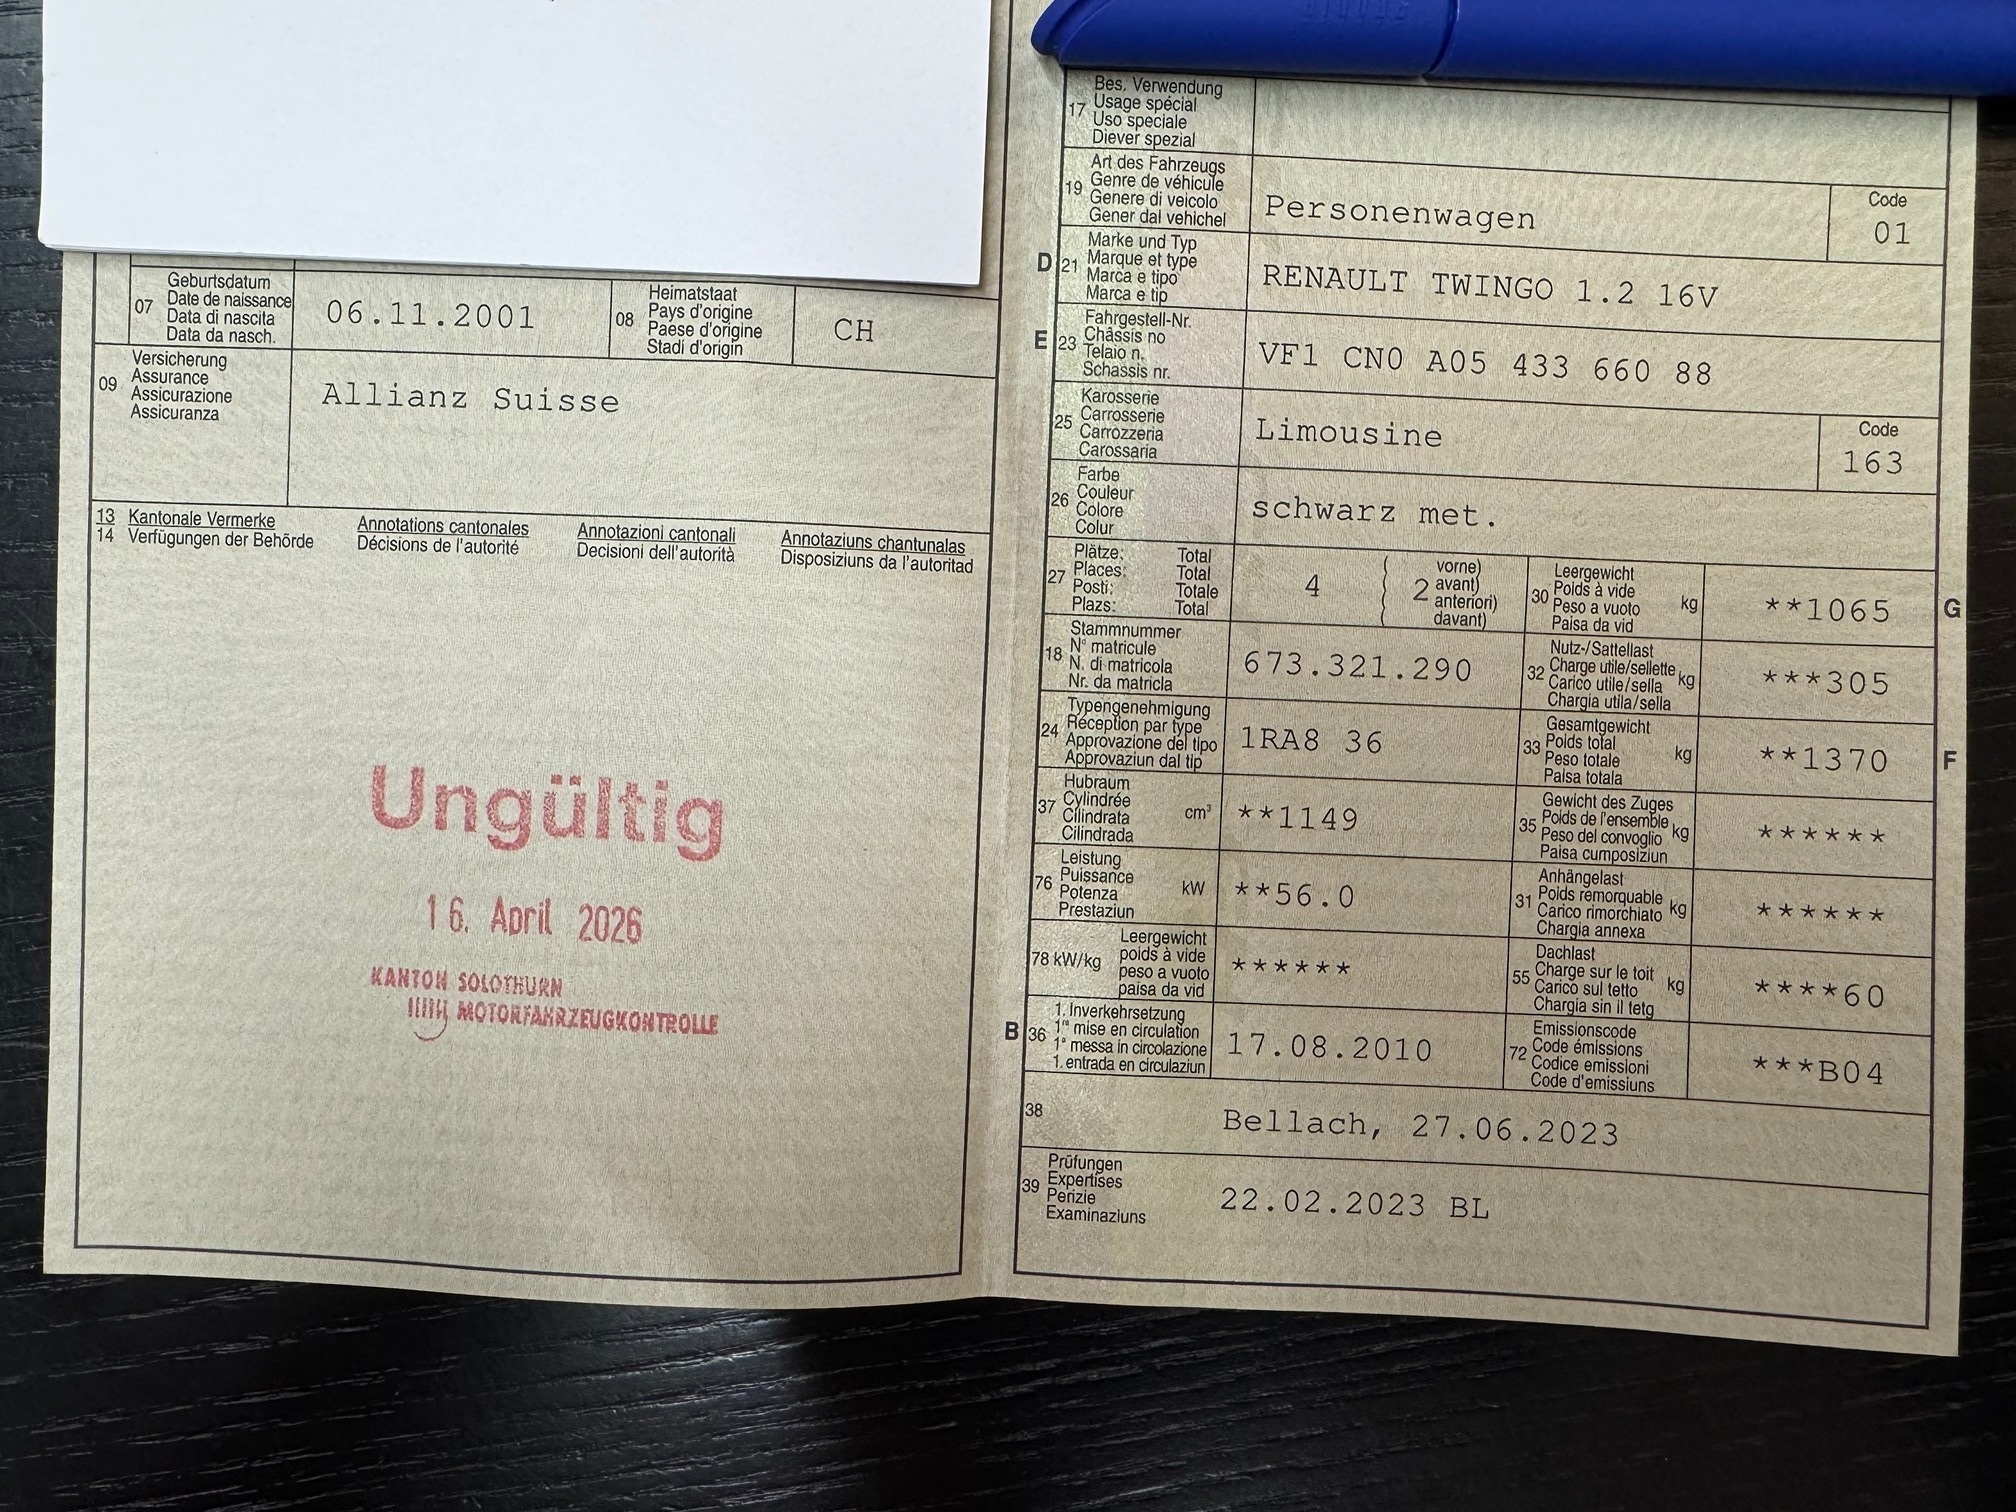 07 Geburtsdatum
Date de naissance
Data di nascita
Data da nasch.
06.11.2001
08 Heimatstaat
Pays d'origine
Paese d'origine
Stadi d'origin
CH
09 Versicherung
Assurance
Assicurazione
Assicuranza
Allianz Suisse
13 Kantonale Vermerke Annotations cantonales Annotazioni cantonali Annotaziuns chantunalas
14 Verfügungen der Behörde Décisions de l'autorité Decisioni dell'autorità Disposiziuns da l'autoritad
Ungültig
16. April 2026
KANTON SOLOTHURN
MOTORFAHRZEUGKONTROLLE
17 Bes. Verwendung
Usage spécial
Uso speciale
Diever spezial
19 Art des Fahrzeugs
Genre de véhicule
Genere di veicolo
Gener dal vehichel
Personenwagen
Code
01
D 21 Marke und Typ
Marque et type
Marca e tipo
Marca e tip
RENAULT TWINGO 1.2 16V
E 23 Fahrgestell-Nr.
Châssis no
Telaio n.
Schassis nr.
VF1 CN0 A05 433 660 88
25 Karosserie
Carrosserie
Carrozzeria
Carossaria
Limousine
Code
163
26 Farbe
Couleur
Colore
Colur
schwarz met.
27 Plätze: Total
Places: Total
Posti: Totale
Plazs: Total
4
2
vorne)
avant)
anteriori)
davant)
30 Leergewicht
Poids à vide
Peso a vuoto kg
Paisa da vid
**1065 G
18 Stammnummer
N° matricule
N. di matricola
Nr. da matricla
673.321.290
32 Nutz-/Sattellast
Charge utile/sellette kg
Carico utile/sella
Chargia utila/sella
***305
24 Typengenehmigung
Réception par type
Approvazione del tipo
Approvaziun dal tip
1RA8 36
33 Gesamtgewicht
Poids total
Peso totale kg
Paisa totala
**1370 F
37 Hubraum
Cylindrée
Cilindrata cm³
Cilindrada
**1149
35 Gewicht des Zuges
Poids de l'ensemble
Peso del convoglio kg
Paisa cumposiziun
******
76 Leistung
Puissance
Potenza kW
Prestaziun
**56.0
31 Anhängelast
Poids remorquable
Carico rimorchiato kg
Chargia annexa
******
78 kW/kg Leergewicht
poids à vide
peso a vuoto
paisa da vid
******
55 Dachlast
Charge sur le toit
Carico sul tetto kg
Chargia sin il tetg
****60
B 36 1. Inverkehrsetzung
1re mise en circulation
1a messa in circolazione
1. entrada en circulaziun
17.08.2010
72 Emissionscode
Code émissions
Codice emissioni
Code d'emissiuns
***B04
38 Bellach, 27.06.2023
39 Prüfungen
Expertises
Perizie
Examinaziuns
22.02.2023 BL